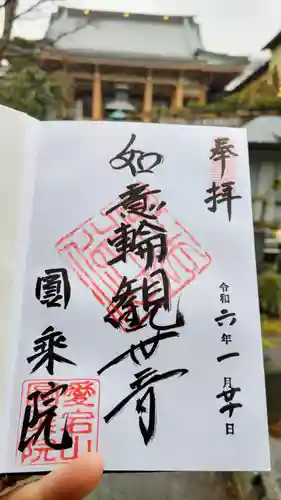 奉拝
令和六年一月廿十日
如意輪観世音
圓乗院
愛宕山
圓乗院